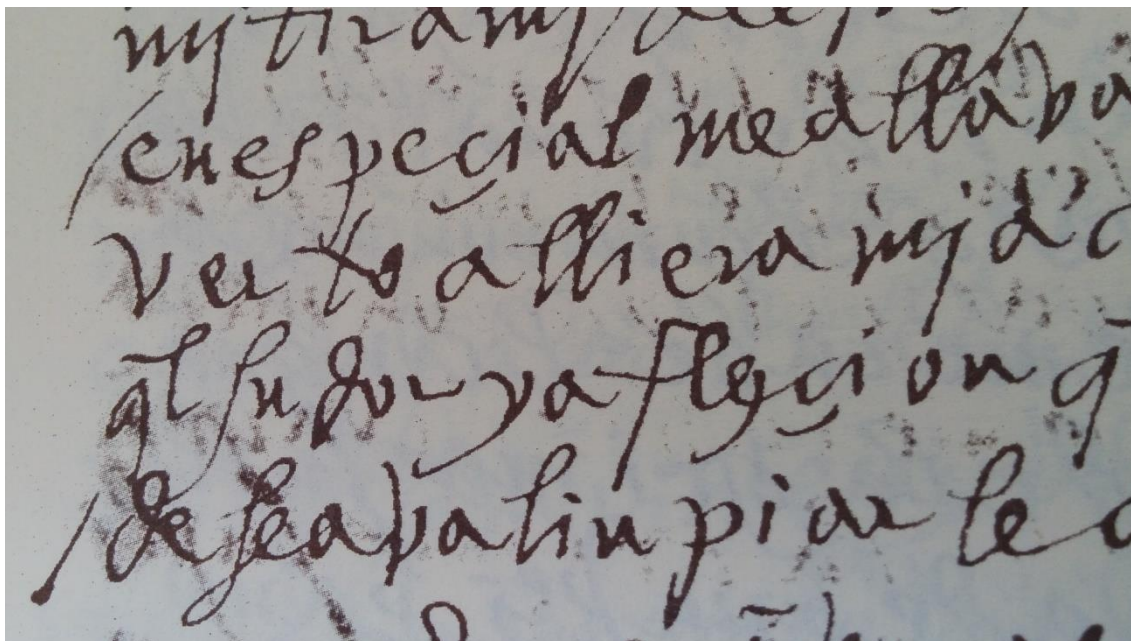 en espeçial me allava
verto alli era mj
ql sudor y afleçion q̃
deseava linpiar le